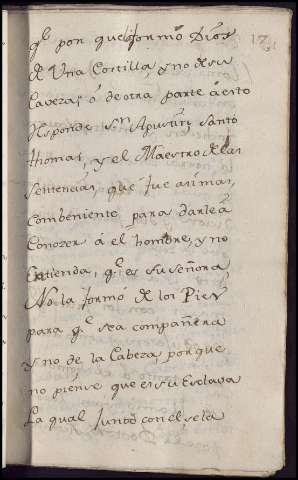 qᵉ por que formó Dios 17
de Una Costilla, y no de su
Caveza, ó de otra parte á esto
Responde Sⁿ Agustin, Santo
thomas, y el Maestro de las
Sentencias, que fue asi mas
Combeniente para darle á
Conozer á el hombre, y no
Entienda, qᵉ es su señora,
No la formó de los Pies
para qᵉ sea compañera
y no de la Cabeza porque
no piense que es su Esclava
La qual Juntó con el, se la